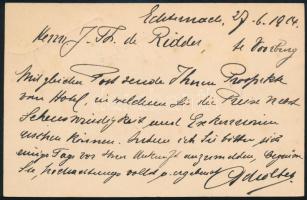 Echternach, 27.-6. 1904.
Herrn J. Th. de Ridder,
te Voorburg
Mit gleicher Post sende Ihnen Prospekt
vom Hotel, in welchem Sie die Preise nebst
Sehenswürdigkeit und
können. Indem ich Sie bitte, sich
einige Tage vor Ihrer Ankunft anzumelden,
Sie, hochachtungsvollst u. ergebenst